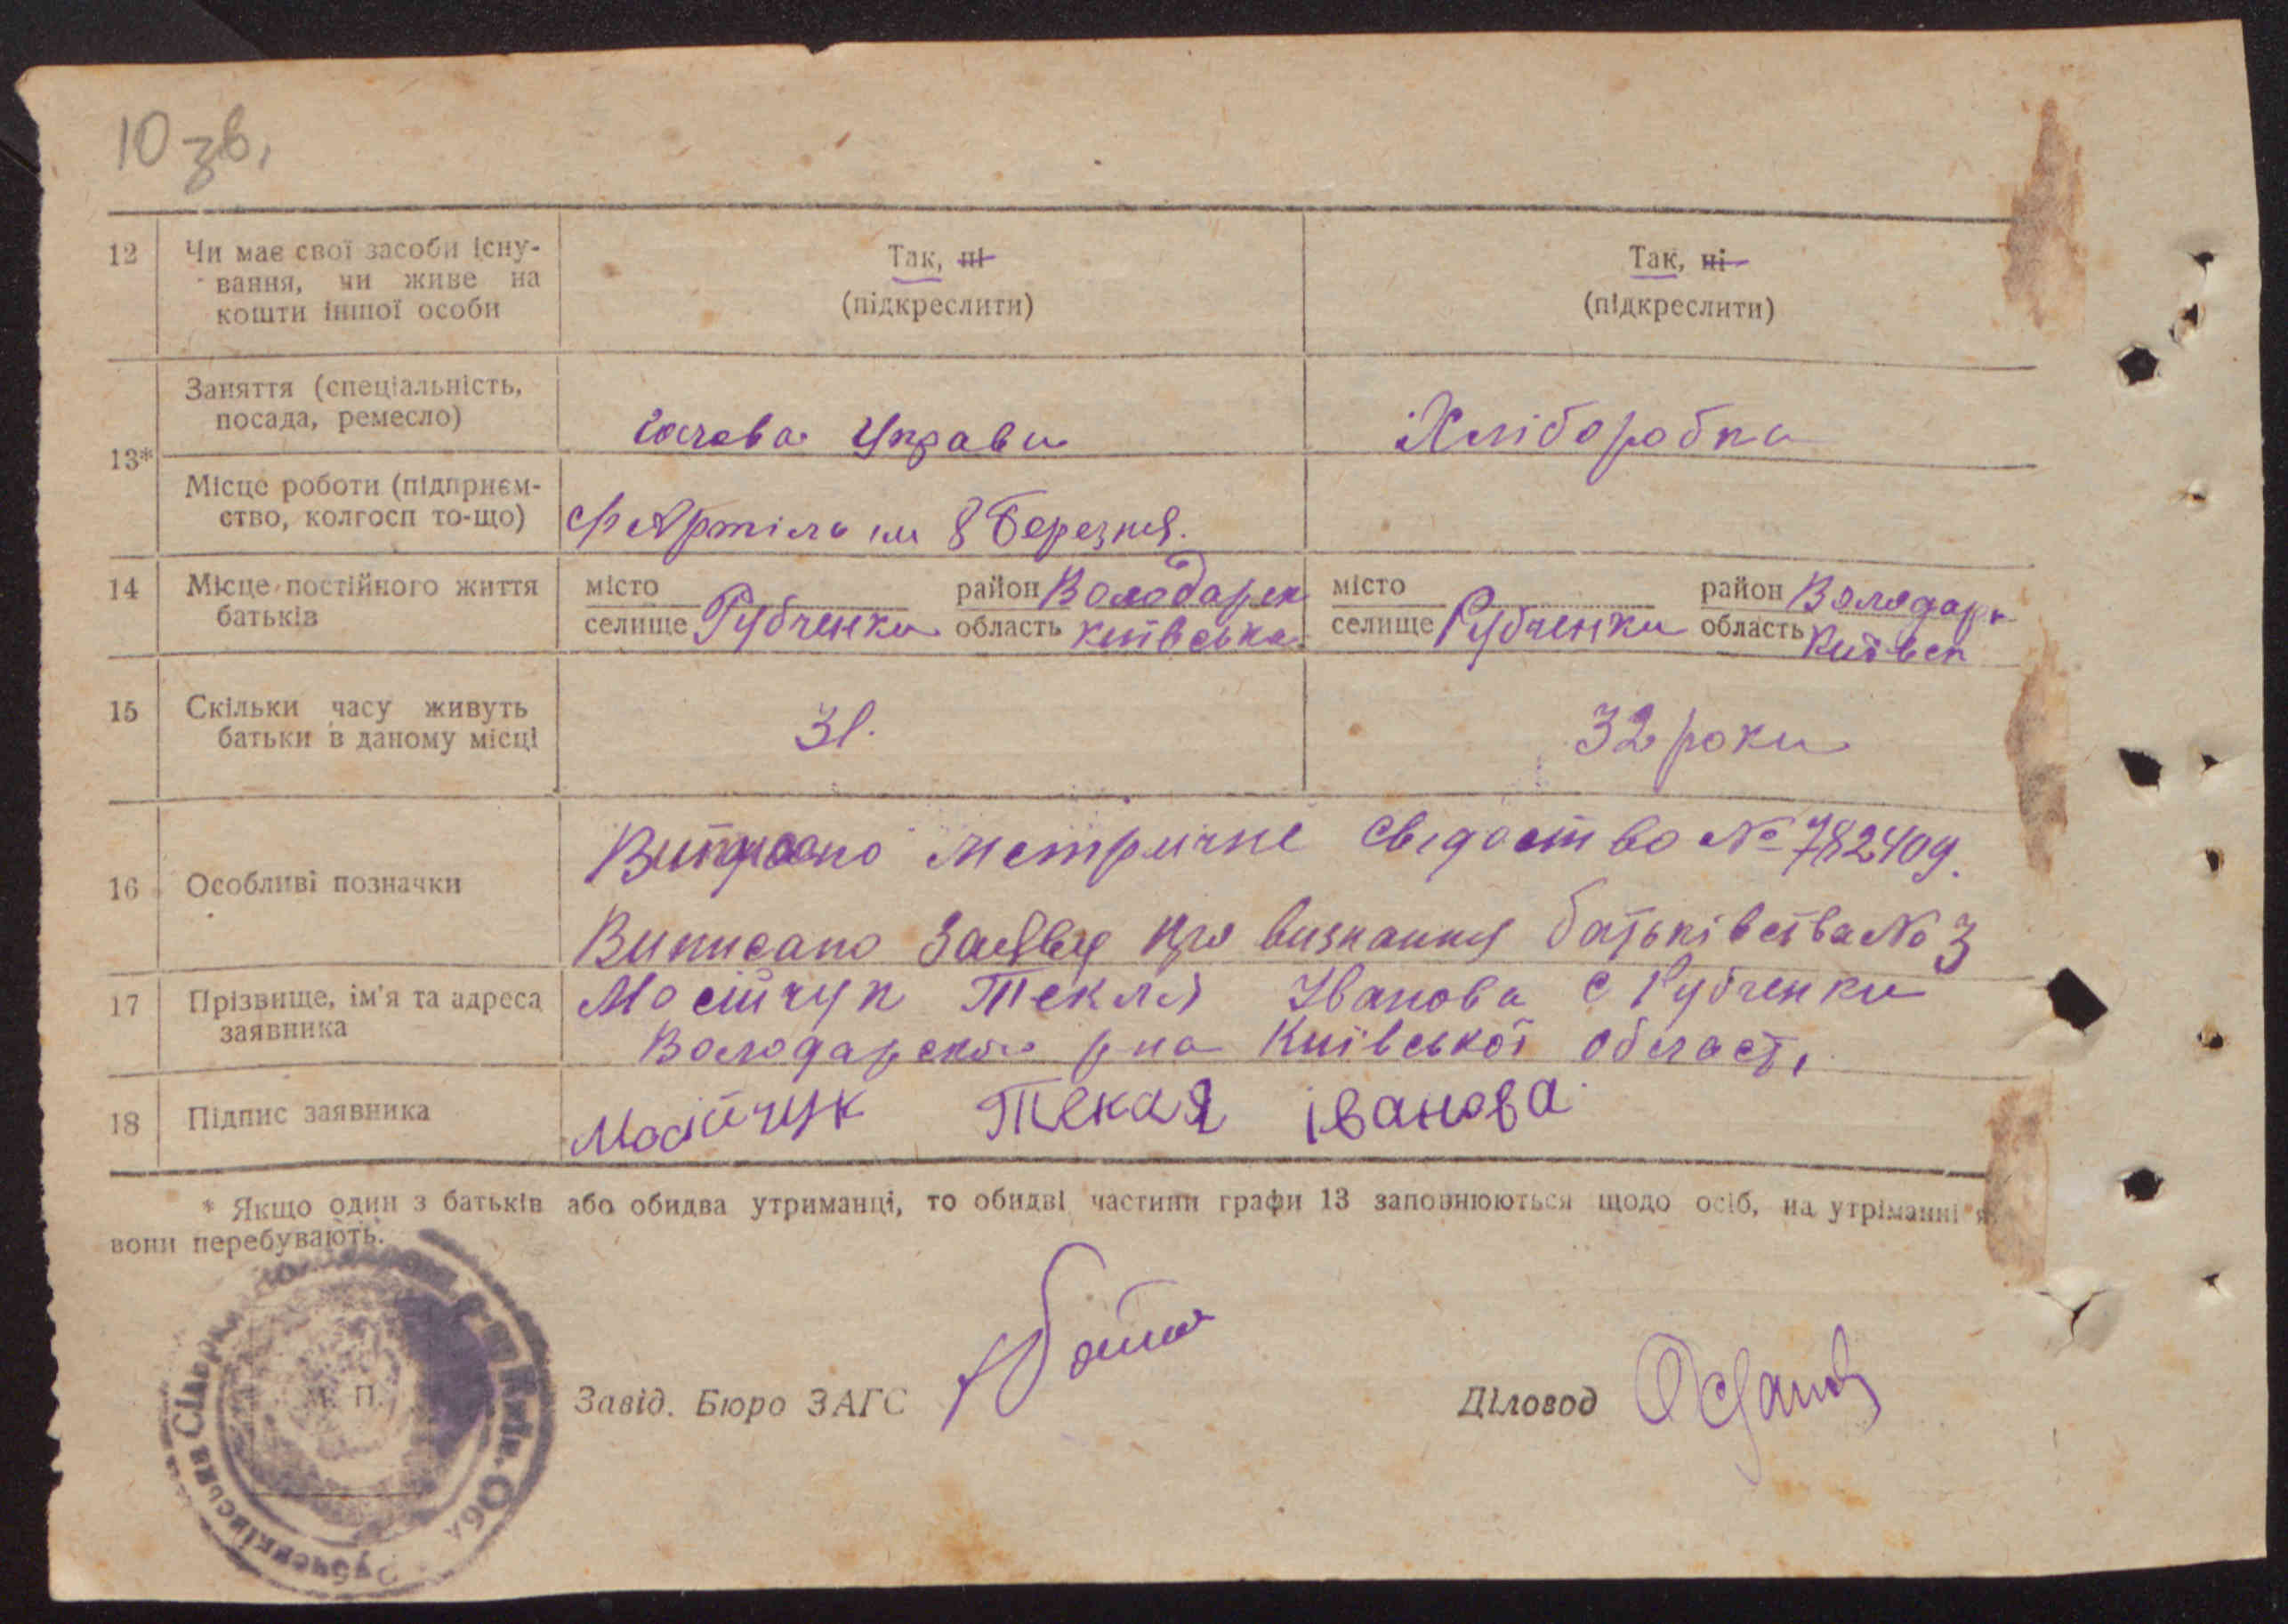 10 зв.
12 Чи має свої засоби існу-
вання, чи живе на
кошти іншої особи
Так, ні
(підкреслити)
Так, ні
(підкреслити)
13*
Заняття (спеціальність,
посада, ремесло)
Голова Управи
Хліборобка
Місце роботи (підприєм-
ство, колгосп то-що)
Артіль ім 8 Березня.
14 Місце постійного життя
батьків
місто
селище Рубченки
район Володарск
область Київська
місто
селище Рубченки
район Володарк
область Київск
15 Скільки часу живуть
батьки в даному місці
32 роки
16 Особливі позначки
Виписано метричне свідоство № 782409.
Виписано Заяву про визнання батьківства № 3
17 Прізвище, ім'я та адреса
заявника
Мосійчук Текля Іванова с Рубченки
Володарского р на Київської області
18 Підпис заявника
Мосійчук Текля іванова
* Якщо один з батьків або обидва утриманці, то обидві частини графи 13 заповнюються щодо осіб, на утріманні я
вони перебувають.
Рубченківська Сільрада
Київ. Обл
М. П.
Завід. Бюро ЗАГС
Діловод